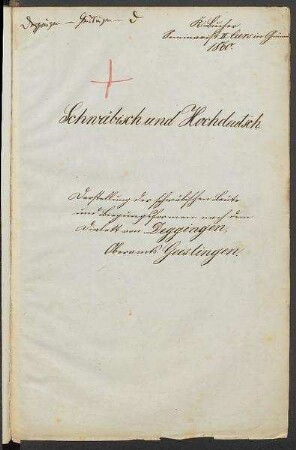 Deggingen – Geislingen – d
K. Bücher
Seminarist II. Curs in Gmünd
1860.
Schwäbisch und Hochdeutsch
Darstellung der schwäbischen Laute
und Biegungsformen nach dem
Dialekt von Deggingen,
Oberamts Geislingen.